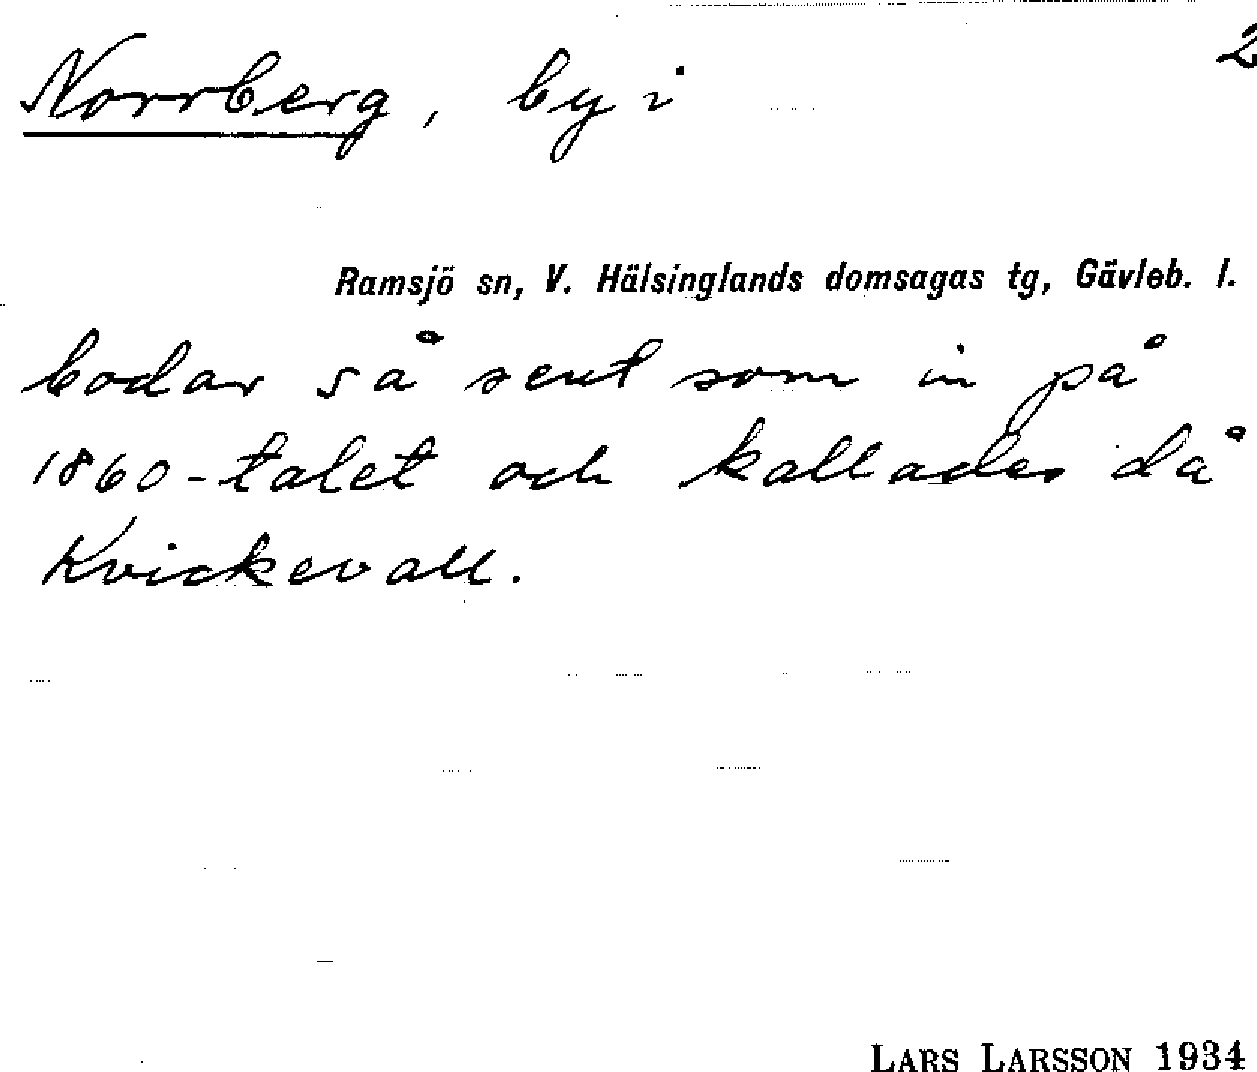 2
Norrberg, by i
Ramsjö sn, V. Hälsinglands domsagas tg, Gävleb. l.
bodar så sent som in på
1860-talet och kallades då
Kvickevall.
LARS LARSSON 1934